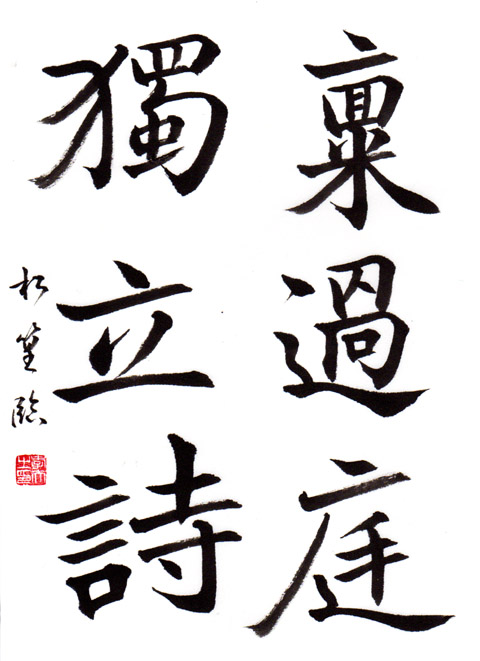 稟過庭
獨立詩
松篁臨